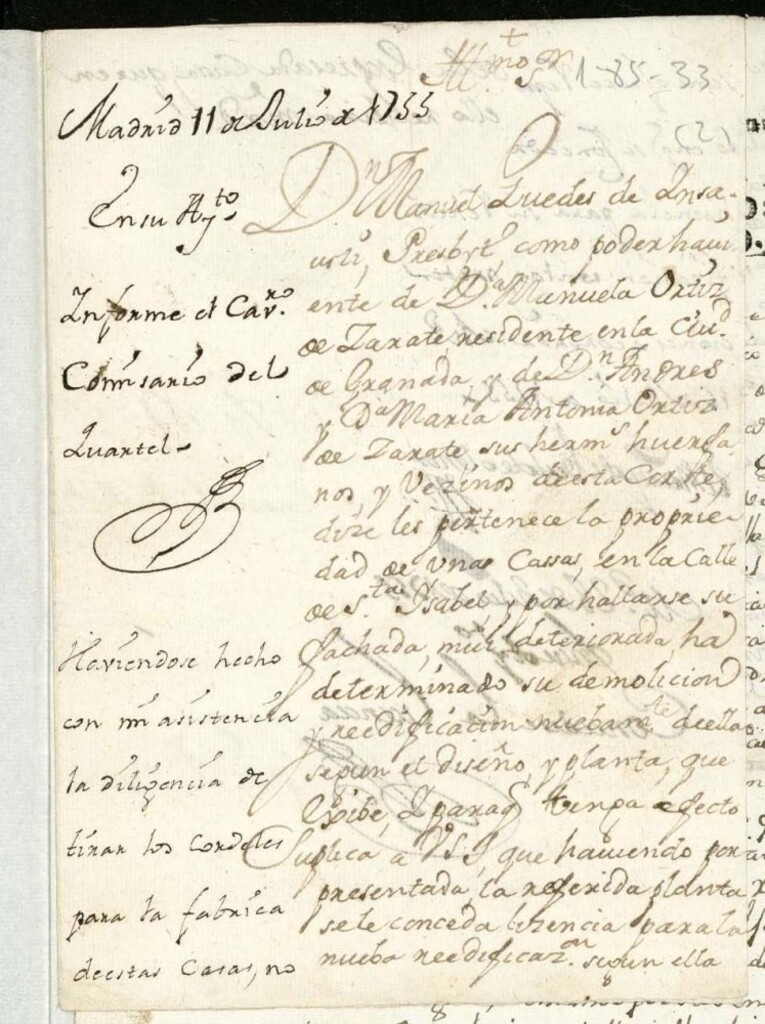 +
Yll.mo S.r 1-85-33
Madrid 11 de Julio de 1755
En su Ay.to
Informe el Cav.ro
Comisario del
Quartel
Haviendose hecho
con mi asistencia
la diligencia de
tirar los cordeles
para la fabrica
de estas Casas, no
D.n Manuel de Ynsa-
usti, Presbyt.o como poder havi
ente de D.a Manuela Ortiz
de Zarate residente en la Ciu.d
de Granada, y de D.n Andres
y D.a Maria Antonia Ortiz
de Zarate sus herm.s huerfa
nos y Vezinos de esta Corte
dize les pertenece la proprie-
dad de unas Cassas, en la Calle
de S.ta Isabel, y por hallarse su
fachada, mui deteriorada ha
determinado su demolicion
y reedificacion nuebam.te de ella
segun el diseño, y planta, que
Exibe, Y paraq tenga efecto
Suplica a V.S.I. que haviendo por
presentada, la referida planta
se le conceda lizencia para la
nueba reedificaz.on segun ella